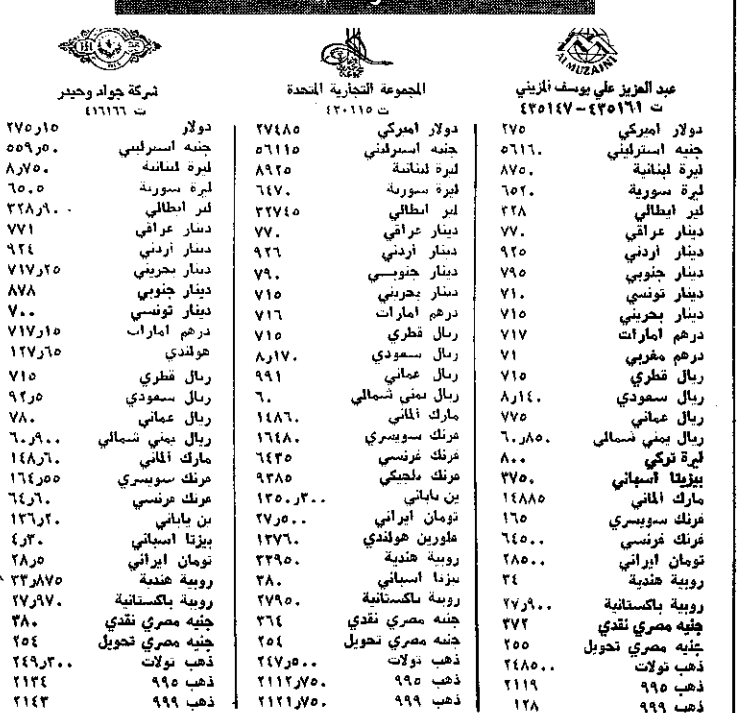 AL MUZAINI
عبد العزيز علي يوسف المزيني
ت ٤٣٥١٦١ - ٤٣٥١٤٧
دولار اميركي ٢٧٥
جنيه استرليني ٥٦١٦٠
ليرة لبنانية ٨٧٥٠
ليرة سورية ٦٥٢٠
لير ايطالي ٣٢٨
دينار عراقي ٧٧٠
دينار أردني ٩٢٥
دينار جنوبي ٧٩٥
دينار تونسي ٧١٠
دينار بحريني ٧١٥
درهم امارات ٧١٧
درهم مغربي ٧١
ريال قطري ٧١٥
ريال سعودي ٨٫١٤٠
ريال عماني ٧٧٥
ريال يمني شمالي ٦٠٫٨٥٠
ليرة تركي ٨٠٠
بيزيتا اسباني ٣٧٥٠
مارك الماني ١٤٨٨٥
فرنك سويسري ١٦٥
فرنك فرنسي ٦٤٥٠٠
تومان ايراني ٢٨٥٠٠
روبية هندية ٣٤
روبية باكستانية ٢٧٫٩٠٠
جنيه مصري نقدي ٣٧٢
جنيه مصري تحويل ٢٥٥
ذهب تولات ٢٤٨٥٠٠
ذهب ٩٩٥ ٢١١٩
ذهب ٩٩٩ ١٢٨
المجموعة التجارية المتحدة
ت ٤٣٠٦١٥
دولار اميركي ٢٧٤٨٥
جنيه استرليني ٥٦١١٥
ليرة لبنانية ٨٩٢٥
ليرة سورية ٦٤٧٠
لير ايطالي ٣٢٧٤٥
دينار عراقي ٧٧٠
دينار أردني ٩٢٦
دينار جنوبي ٧٩٠
دينار بحريني ٧١٥
درهم امارات ٧١٦
ريال قطري ٧١٥
ريال سعودي ٨٫١٧٠
ريال عماني ٩٩١
ريال يمني شمالي ٦٠
مارك الماني ١٤٨٦٠
فرنك سويسري ١٦٤٨٠
فرنك فرنسي ٦٤٣٥
فرنك بلجيكي ٩٣٨٥
ين ياباني ١٣٥٠٫٣٠٠
تومان ايراني ٢٧٫٥٠٠
فلورين هولندي ١٣٧٦٠
روبية هندية ٣٣٩٥٠
بيزتا اسباني ٣٨٠
روبية باكستانية ٢٧٩٥٠
جنيه مصري نقدي ٣٦٤
جنيه مصري تحويل ٢٥٤
ذهب تولات ٢٤٧٫٥٠٠
ذهب ٩٩٥ ٢١١٢٫٧٥٠
ذهب ٩٩٩ ٢١٢١٫٧٥٠
شركة جواد وحيدر
ت ٤١٦١٦٦
دولار ٢٧٥٫١٥
جنيه استرليني ٥٥٩٫٥٠
ليرة لبنانية ٨٫٧٥٠
ليرة سورية ٦٥٫٥
لير ايطالي ٣٢٨٫٩٠٠
دينار عراقي ٧٧١
دينار أردني ٩٢٤
دينار بحريني ٧١٧٫٢٥
دينار جنوبي ٨٧٨
دينار تونسي ٧٠٠
درهم امارات ٧١٧٫١٥
هولندي ١٢٧٫٦٥
ريال قطري ٧١٥
ريال سعودي ٩٢٫٥
ريال عماني ٧٨٠
ريال يمني شمالي ٦٠٫٩٠٠
مارك الماني ١٤٨٫٦٠
فرنك سويسري ١٦٤٫٥٥
فرنك فرنسي ٦٤٫٦٠
ين ياباني ١٣٦٫٢٠
بيزتا اسباني ٤٫٣٠
تومان ايراني ٢٨٫٥
روبية هندية ٣٣٫٨٧٥
روبية باكستانية ٢٧٫٩٧٠
جنيه مصري نقدي ٣٨٠
جنيه مصري تحويل ٢٥٤
ذهب تولات ٢٤٩٫٣٠٠
ذهب ٩٩٥ ٢١٣٤
ذهب ٩٩٩ ٢١٤٣